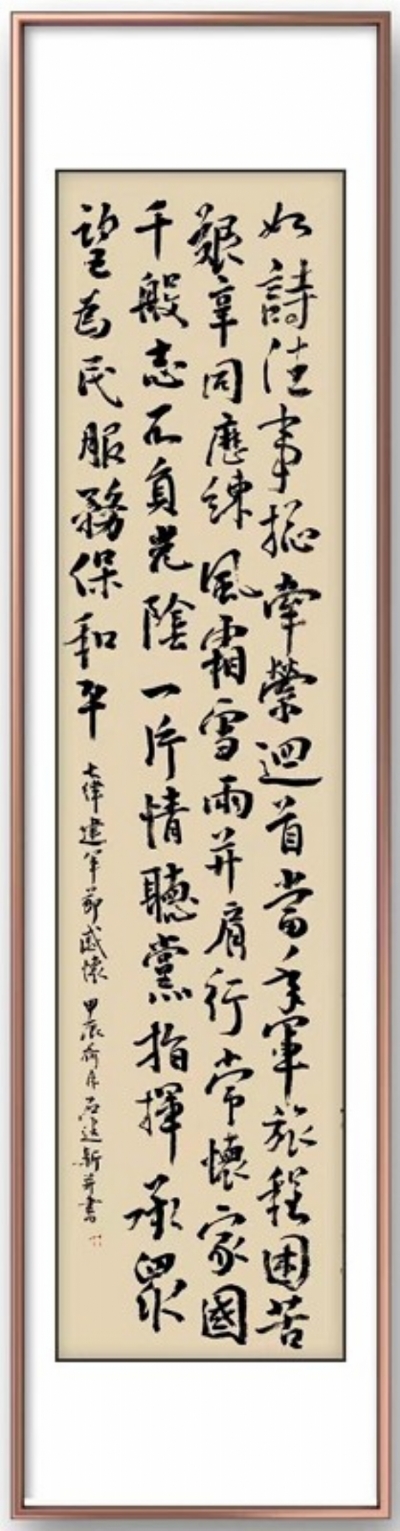 如詩往事總牽縈迴首當年軍旅程困苦
艱辛同應練風霜雪雨并肩行常懷家國
千般志不負光陰一片情聽黨指揮承眾
望為民服務保和平
七律建軍節感懷 甲辰荷月石達新并書